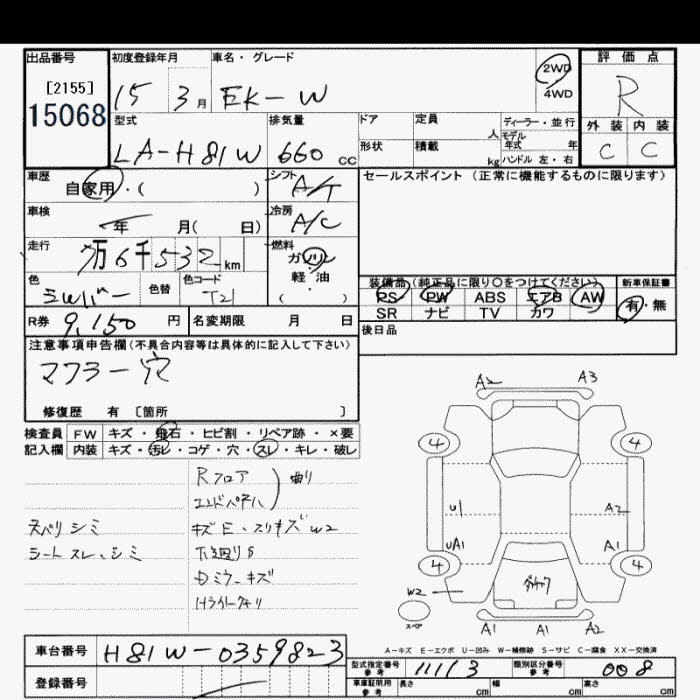 出品番号
[2155]
15068
初度登録年月
15 3月
車名・グレード
EK-W
2WD
4WD
評価点
R
外装 内装
C C
型式
LA-H81W
排気量
660 cc
ドア
定員
人
ディーラー・並行
モデル年式 年
形状
積載
kg
ハンドル 左・右
車歴
自家用・( )
シフト
A/T
セールスポイント (正常に機能するものに限ります)
車検
年 月( 日)
冷房
A/C
走行
万6千532km
燃料
ガソリン
軽・油
( )
色
シルバー
色替
色コード
装備品(純正品に限り○をつけてください)
新車保証書
PS PW ABS エアB AW
有・無
SR ナビ TV カワ
R券 9,150円
名変期限 月 日
後日品
注意事項申告欄(不具合内容等は具体的に記入して下さい)
マフラー穴
修復歴 有 [箇所 ]
検査員 FW キズ・飛石・ヒビ割・リペア跡・×要
記入欄 内装 キズ・汚レ・コゲ・穴・スレ・キレ・破レ
Rフロア
エンドパネル
曲り
キズE、スリキズW2
下廻りS
ミラーキズ
シミ
シートスレ、シミ
A2 A3
4 4
U1 A2
UA1 A1
4 4
W2
スペア
A1 A1 A2
A-キズ E-エクボ U-凹み W-補修跡 S-サビ C-腐食 XX-交換済
車台番号 H81W-0359823
登録番号
型式指定番号 参考 11113
類別区分番号 参考 008
車庫証明用 参考 長さ cm 幅 cm 高さ cm